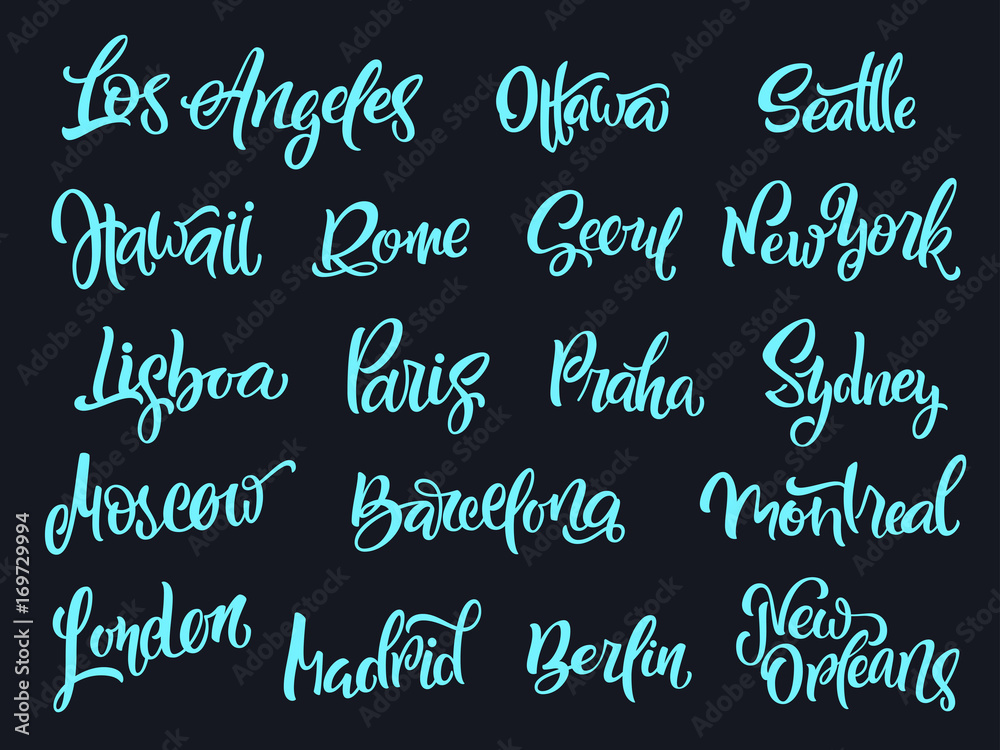 Los Angeles Ottawa Seattle
Hawaii Rome Seoul New York
Lisboa Paris Praha Sydney
Moscow Barcelona Montreal
London Madrid Berlin New
Orleans
Adobe Stock | #169729994
Adobe Stock